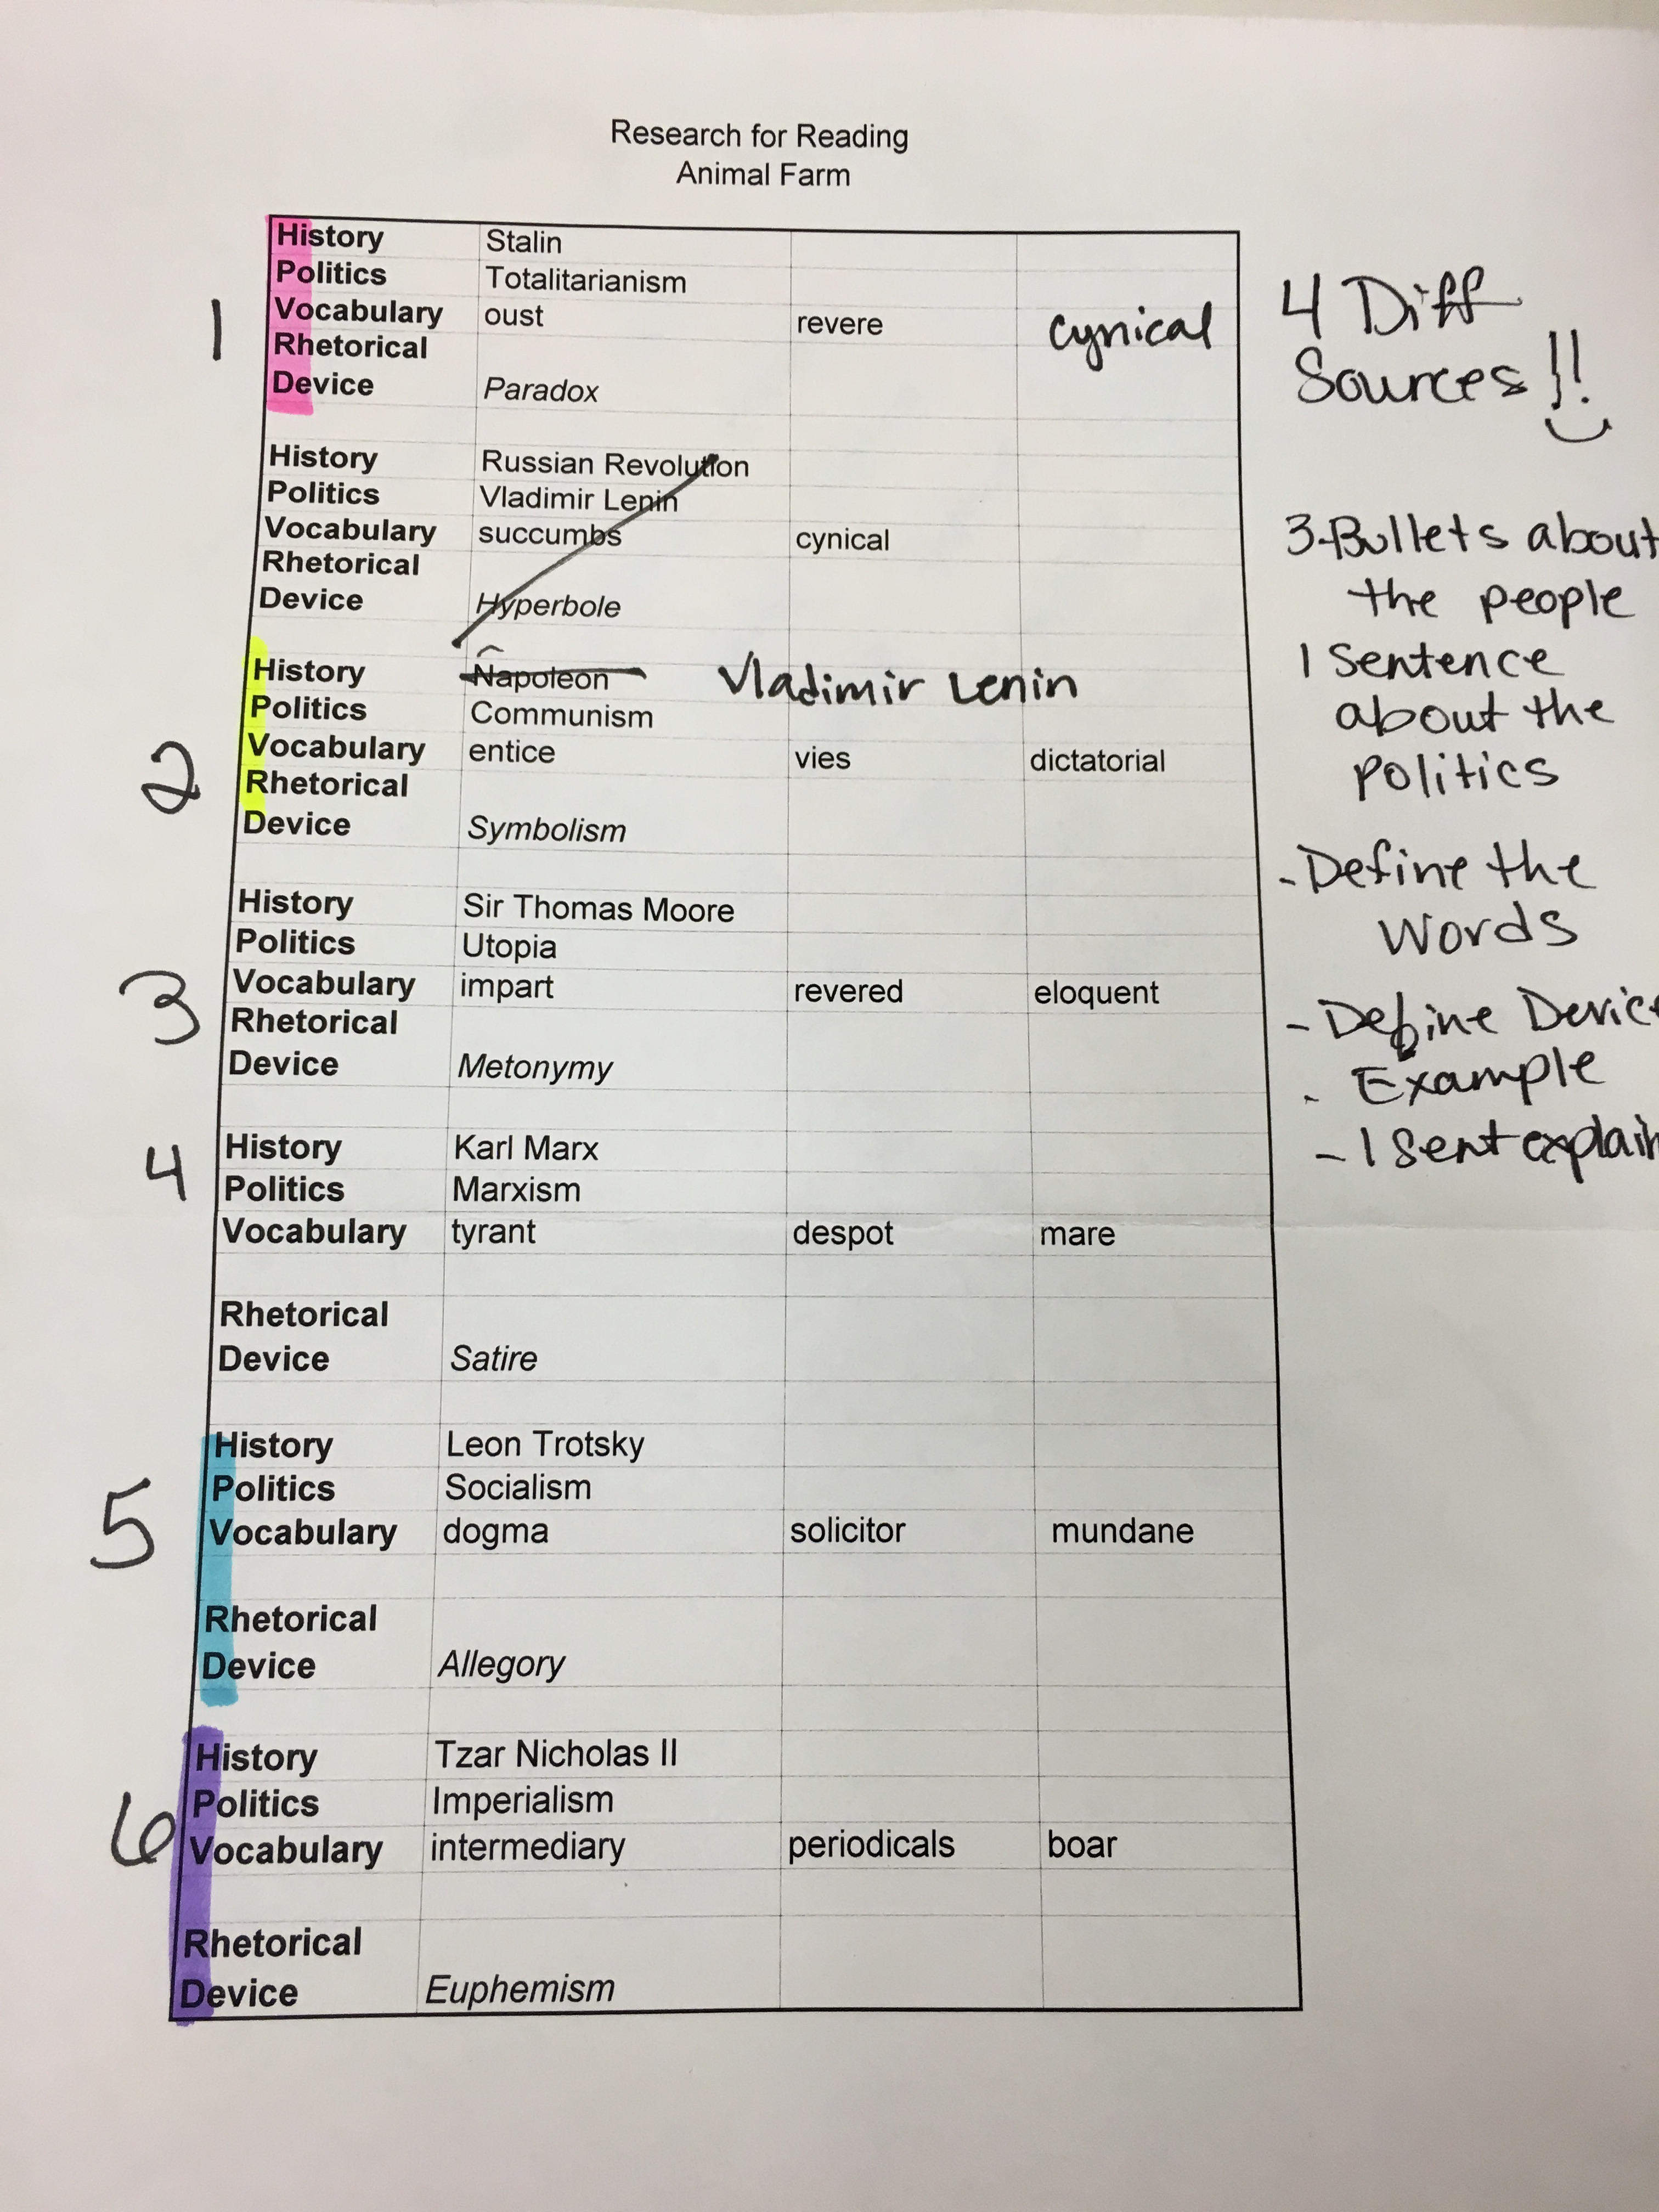 Research for Reading
Animal Farm
History Stalin
Politics Totalitarianism
1 Vocabulary oust revere cynical
Rhetorical
Device Paradox
4 Diff
Sources!!
History Russian Revolution
Politics Vladimir Lenin
Vocabulary succumbs cynical
Rhetorical
Device Hyperbole
3-Bullets about
the people
1 Sentence
about the
politics
History Napoleon Vladimir Lenin
Politics Communism
2 Vocabulary entice vies dictatorial
Rhetorical
Device Symbolism
- Define the
Words
History Sir Thomas Moore
Politics Utopia
3 Vocabulary impart revered eloquent
Rhetorical
Device Metonymy
- Define Device
- Example
- 1 Sent explain
4 History Karl Marx
Politics Marxism
Vocabulary tyrant despot mare
Rhetorical
Device Satire
History Leon Trotsky
Politics Socialism
5 Vocabulary dogma solicitor mundane
Rhetorical
Device Allegory
History Tzar Nicholas II
Politics Imperialism
6 Vocabulary intermediary periodicals boar
Rhetorical
Device Euphemism